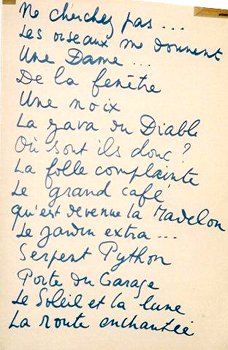 Ne cherchez pas ...
Les oiseaux me donnent
Une Dame ...
De la fenêtre
Une noix
La java du Diable
Où sont ils donc ?
La folle complainte
Le grand café
qu'est devenue la Madelon
Le jardin extra ...
Serpent Python
Porte du Garage
Le Soleil et la lune
La route enchantée